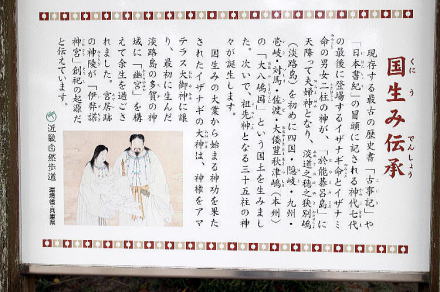 国生み伝承
くに う でんしょう
現存する最古の歴史書「古事記」や
「日本書紀」の冒頭に記される神代七代
の最後に登場するイザナギ命とイザナミ
命の男女二柱の神が、「於能碁呂島」に
天降って夫婦神となり、淡道之穂之狭別嶋
(淡路島)を初めに四国・隠岐・九州・
壱岐・対馬・佐渡・大倭豊秋津嶋(本州)
の「大八嶋国」という国土を生みまし
た。次いで、祖先神となる三十五柱の神
々が誕生します。
国生みの大業から始まる神功を果た
されたイザナギの大神は、神様をアマ
テラス大御神に譲
り、最初に生んだ
淡路島の多賀の神
域に「幽宮」を構
えて余生を過ごさ
れました。宮居跡
の神陵が「伊弉諾
神宮」創祀の起源だ
と伝えています。
近畿自然歩道
環境省・兵庫県